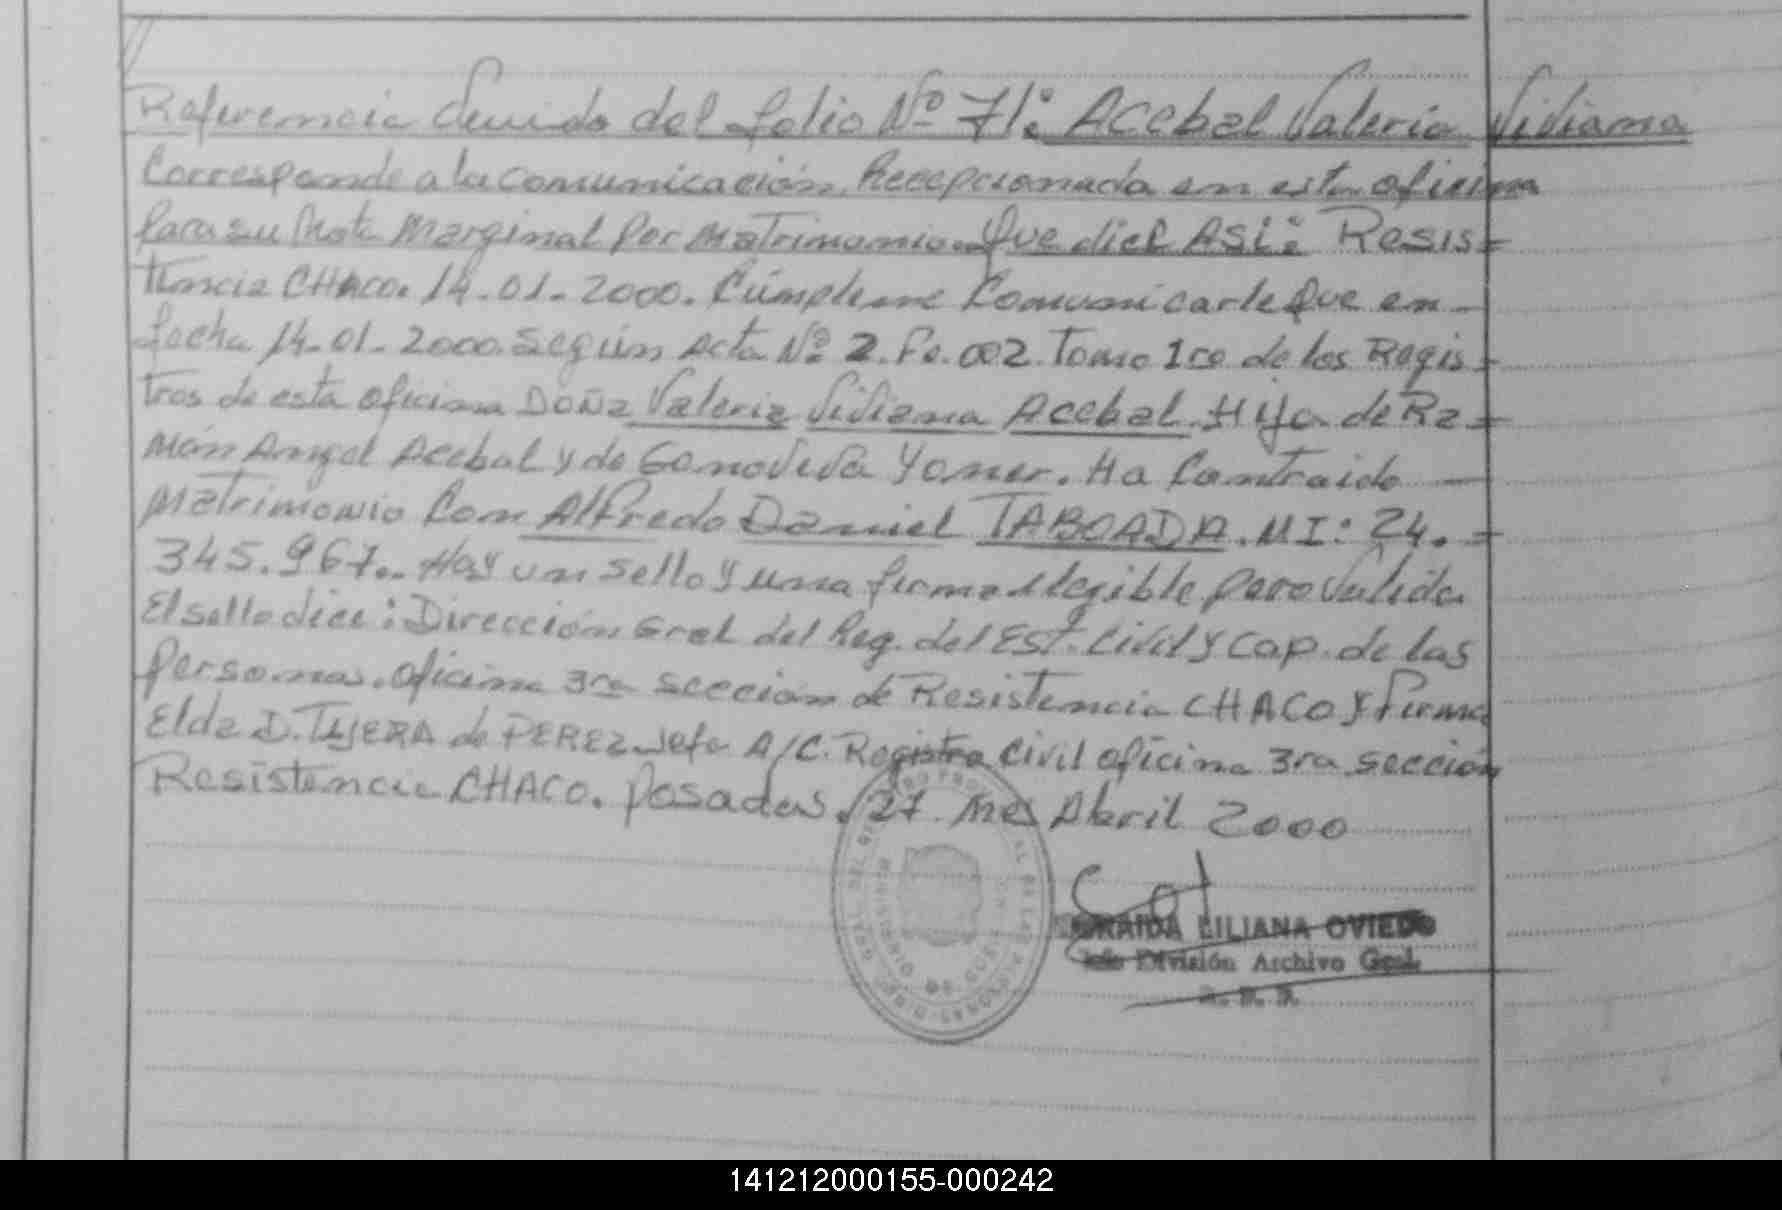 Referencia del folio Nº 71: Acebal Valeria Viviana
Corresponde a la comunicación, Recepcionada en esta oficina
Para su Nota Marginal Por Matrimonio. Que dice ASi: Resis=
tencia CHACO. 14-01-2000. Cúmpleme Comunicarle Que en
fecha 14-01-2000. Según Acta Nº 2. Fo. 002. Tomo 1ro de los Regis=
tros de esta oficina Doña Valeria Viviana Acebal. Hija de Ra=
món Angel Acebal y de Genoveva Yoner. Ha Contraido
Matrimonio Con Alfredo Daniel TABOADA. MI: 24.=
345.967.. Hay un sello y una firma ilegible pero Valida
El sello dice: Dirección Gral del Reg. del Est. Civil y Cap. de las
Personas. oficina 3ra sección de Resistencia CHACO y firma
Elda D. TIJERA de PEREZ Jefa A/C. Registro Civil oficina 3ra sección
Resistencia CHACO. Posadas. 27. Mes Abril 2000
LILIANA OVIEDO
Jefe División Archivo Gral.
141212000155-000242